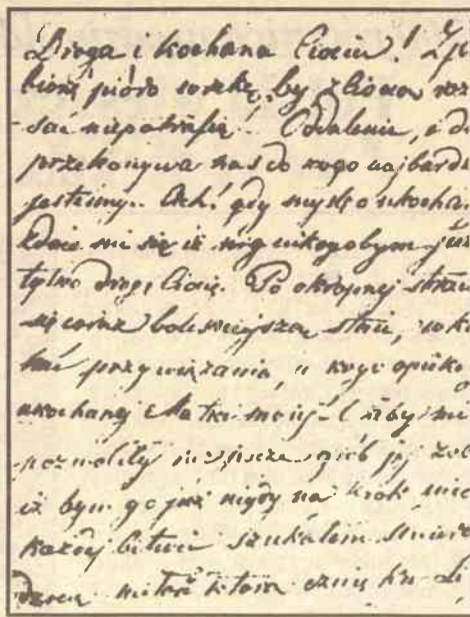 Droga i kochana Ciociu!
biorę pióro w rękę, by z Ciocią roz
sać niepotrafię! Oddalenie, a d
przekonywa nas do kogo najbard
jesteśmy. Ach! gdy myślę o ukochan
zdaje mi się iż nikogobym już
tylko drogę Ciocię. Po okropnej strac
się coraz boleśniejsza staje,
przywiązania, u kogo opieki
ukochanej Matki mojej
pozwoliły jeszcze
iż bym go już nigdy na krok nie
każdej bitwie szukałem śmierc
miłość którą czuję ku